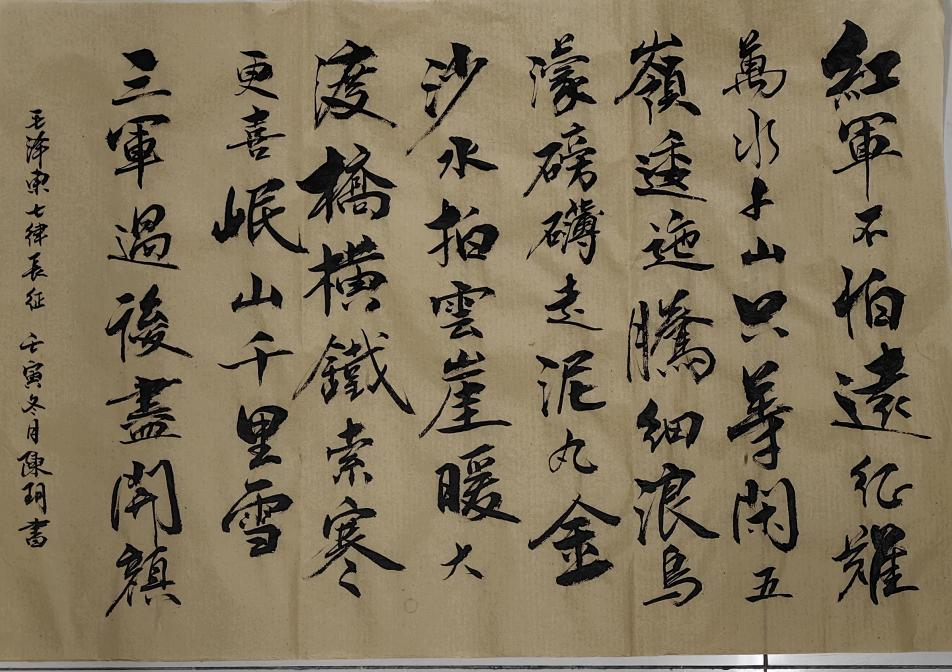 紅軍不怕遠征難
萬水千山只等閑五
嶺逶迤騰細浪烏
濛磅礴走泥丸金
沙水拍雲崖暖大
渡橋橫鐵索寒
更喜岷山千里雪
三軍過後盡開顏
毛泽東七律長征 壬寅冬月陳玥書